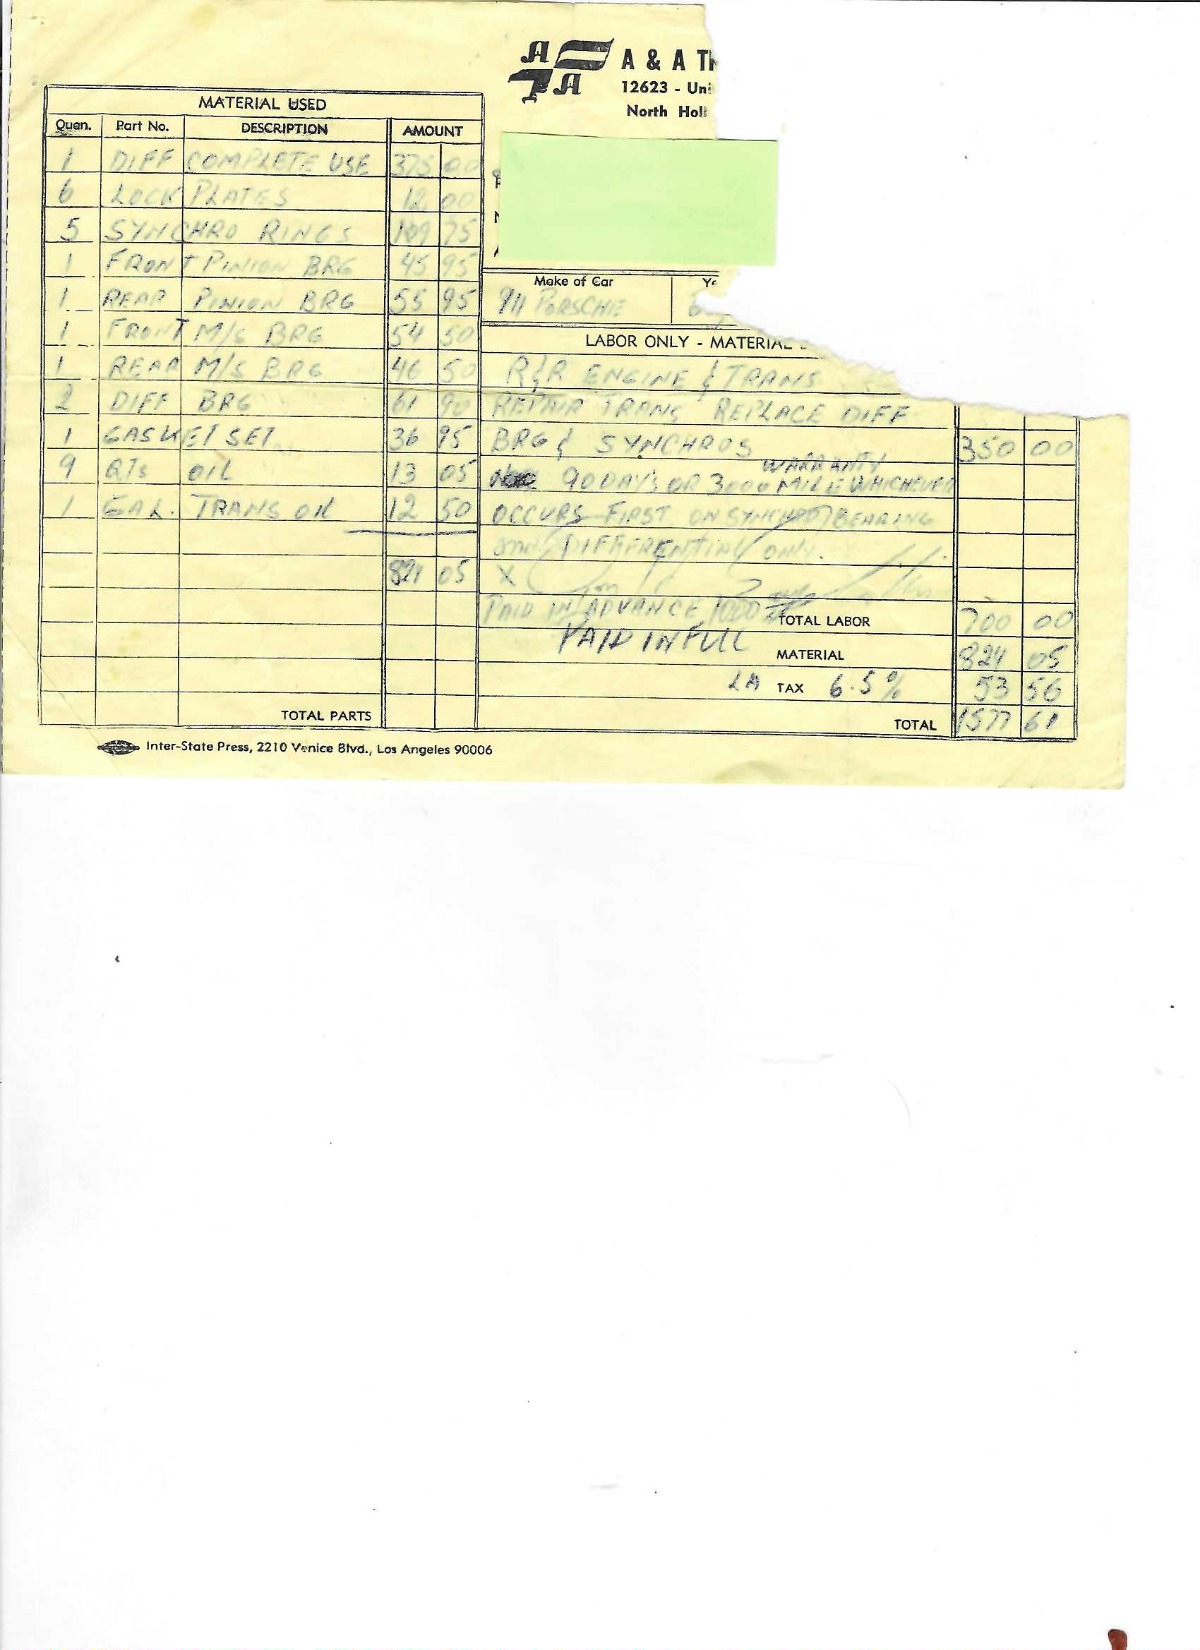 A A
A & A T
12623 - Uni
North Holl
MATERIAL USED
Quan. Part No. DESCRIPTION AMOUNT
1 DIFF COMPLETE USE 375 00
6 LOCK PLATES 12 00
5 SYNCHRO RINGS 109 75
1 FRONT PINION BRG 45 95
1 REAR PINION BRG 55 95
1 FRONT M/S BRG 54 50
1 REAR M/S BRG 46 50
2 DIFF BRG 61 90
1 GASKET SET 36 95
9 QTS OIL 13 05
1 GAL. TRANS OIL 12 50
05
TOTAL PARTS
Make of Car
911 PORSCHE
LABOR ONLY - MATERIAL
R&R ENGINE & TRANS
REPAIR TRANS REPLACE DIFF
BRG & SYNCHROS 350 00
WARRANTY
90 DAYS OR 3000 MILE WHICHEVER
OCCURS FIRST ON SYNCHRO BEARING
DIFFERENTIAL only.
X
PAID IN ADVANCE 1000
TOTAL LABOR 700 00
PAID IN FULL
MATERIAL 824 05
LA TAX 6.5% 53 56
TOTAL 1577 61
Inter-State Press, 2210 Venice Blvd., Los Angeles 90006